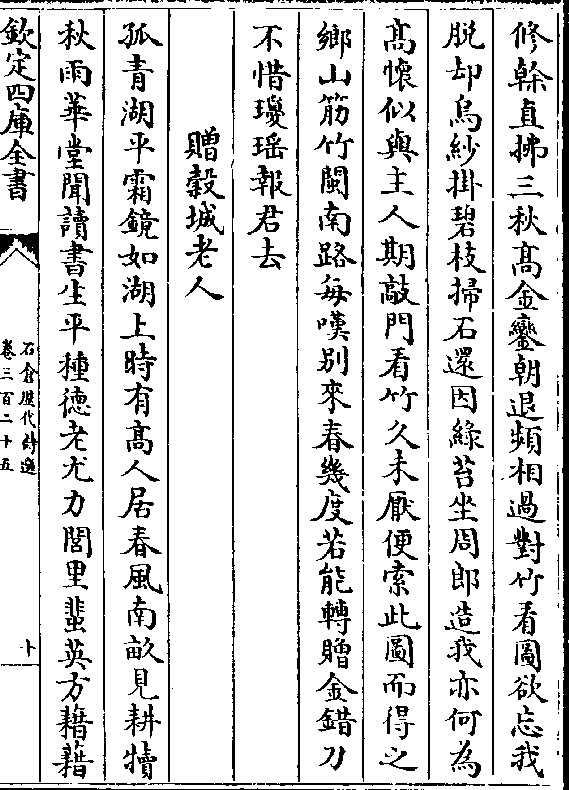 修榦直拂三秋髙金鑾朝退頻相過對竹看圖欲忘我
脱却烏紗掛碧枝掃石還因緑苔坐周郎造我亦何為
髙懐似與主人期敲門看竹久未厭便索此圖而得之
鄉山筋竹閩南路每嘆别來春幾度若能轉贈金錯刀
不惜瓊瑶報君去
贈榖城老人
孤青湖平霜鏡如湖上時有髙人居春風南畝見耕犢
秋雨華堂聞讀書生平種德老尤力閭里蜚英方籍籍
欽定四庫全書
石倉歴代詩選
卷三百二十五
十